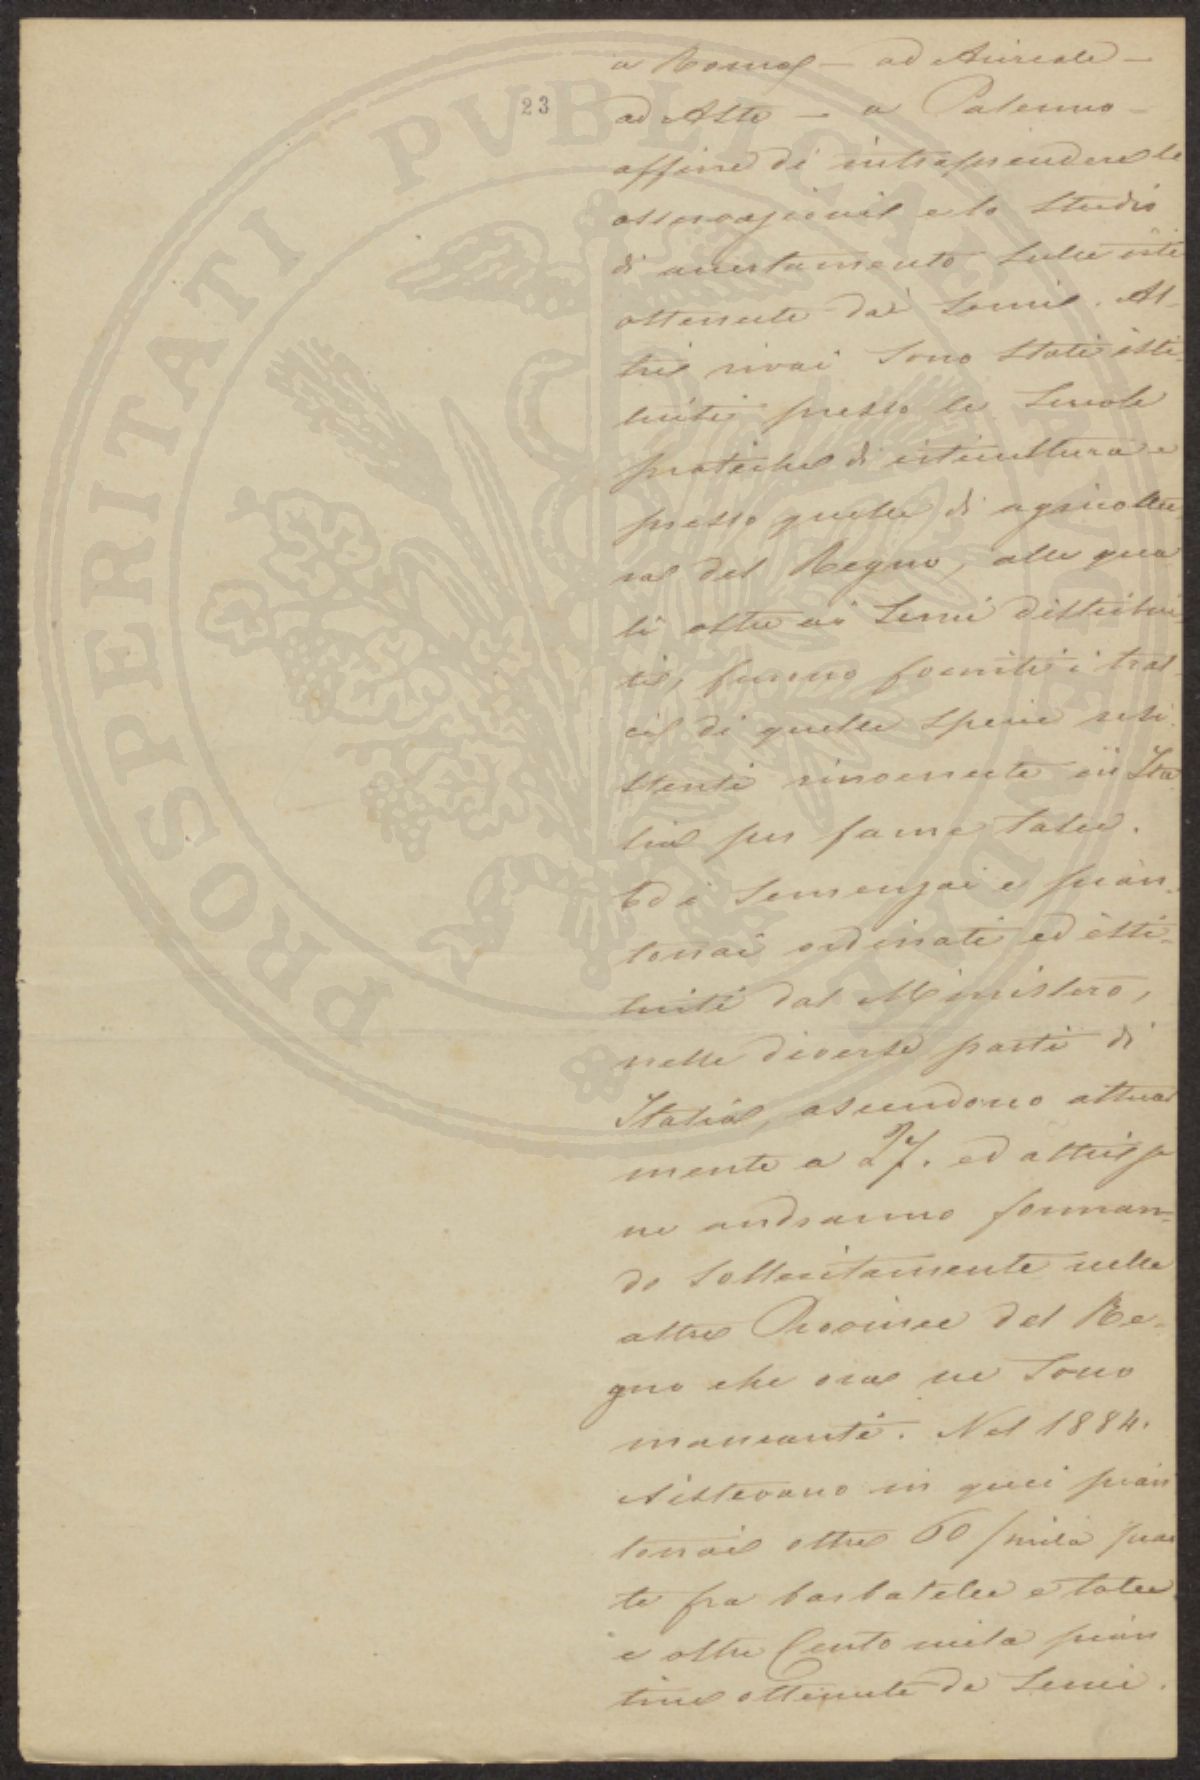 23
a Roma — ad Acireale —
ad Asti — a Palermo —
affine di intraprendere le
osservazioni e lo studio
di accertamento sulle viti
ottenute dai semi. Al-
tri vivai sono stati isti-
tuiti presso le Scuole
pratiche di viticultura e
presso quelle di agricoltu
ra del Regno, alle qua
li oltre ai semi distribui
ti, furono forniti i tral
ci di quelle specie resi
stenti rinvenute in Ita
lia per farne talee.
Ed i semenzai e pian-
tonai ordinati ed isti-
tuiti dal Ministero,
nelle diverse parti di
Italia, ascendono attual
mente a 27. ed altri se
ne andranno forman-
do sollecitamente nelle
altre Provincie del Re-
gno che ora ne sono
mancanti. Nel 1884.
esistevano in quei pian
tonai oltre 60/mila pian
te fra barbatelle e talee
e oltre Cento mila pian
tine ottenute da semi.
PROSPERITATI PVBLICAE AVGENDAE